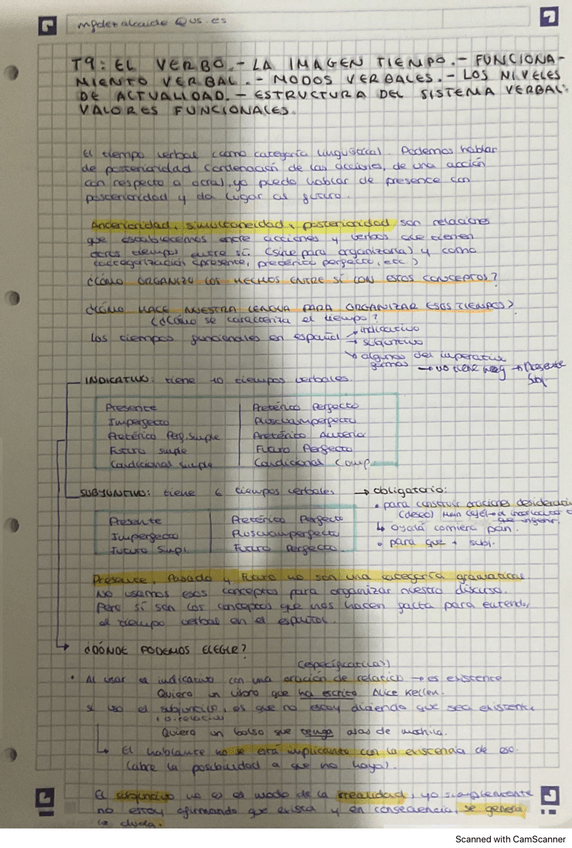 mfdezalcaide@us.es
T9: EL VERBO.- LA IMAGEN TIEMPO.- FUNCIONA-
MIENTO VERBAL.- MODOS VERBALES.- LOS NIVELES
DE ACTUALIDAD.- ESTRUCTURA DEL SISTEMA VERBAL:
VALORES FUNCIONALES.
El tiempo verbal (como categoría lingüística). Podemos hablar
de posterioridad (ordenación de las acciones, de una acción
con respecto a otra), yo puedo hablar de presente con
posterioridad y da lugar al futuro.
Anterioridad, simultaneidad, posterioridad son relaciones
que establecemos entre acciones y verbos que tienen
tiempos entre sí (sirve para organizarla) y como
categorización (presente, pretérito perfecto, etc)
¿CÓMO ORGANIZO LOS HECHOS ENTRE SÍ CON ESTOS CONCEPTOS?
¿CÓMO HACE NUESTRA LENGUA PARA ORGANIZAR ESOS TIEMPOS?
(¿Cómo se caracteriza el tiempo?
Los tiempos funcionales en español → indicativo
→ subjuntivo
algunas del imperativo
formas → no tiene neg → Presente
Subj.
INDICATIVO: tiene 10 tiempos verbales
Presente Pretérito Perfecto
Imperfecto Pluscuamperfecto
Pretérito Perf. simple Pretérito Anterior
Futuro simple Futuro Perfecto
Condicional simple Condicional Comp.
SUBJUNTIVO: tiene 6 tiempos verbales → obligatorio:
• para construir oraciones desiderativas
(deseo)
Presente Pretérito Perfecto
↳ ojalá comiera pan.
Imperfecto Pluscuamperfecto
• para que + subj.
Futuro Simpl. Futuro Perfecto.
Presente, Pasado y Futuro no son una categoría gramatical
No usamos esos conceptos para organizar nuestro discurso.
Pero sí son los conceptos que nos hacen falta para entender
el tiempo verbal en el español.
¿DÓNDE PODEMOS ELEGIR?
(especificativas)
• Al usar el indicativo con una oración de relativo → es existente
Quiero un libro que ha escrito Alice Kellen.
Si uso el subjuntivo, es que no estoy diciendo que sea existente
o. relativo
Quiero un bolso que tenga asas de mochila.
↳ El hablante no se está implicando con la existencia de eso
(abre la posibilidad a que no haya).
El subjuntivo no es modo de la irrealidad, yo simplemente
no estoy afirmando que exista y en consecuencia, se genera
la duda.
Scanned with CamScanner